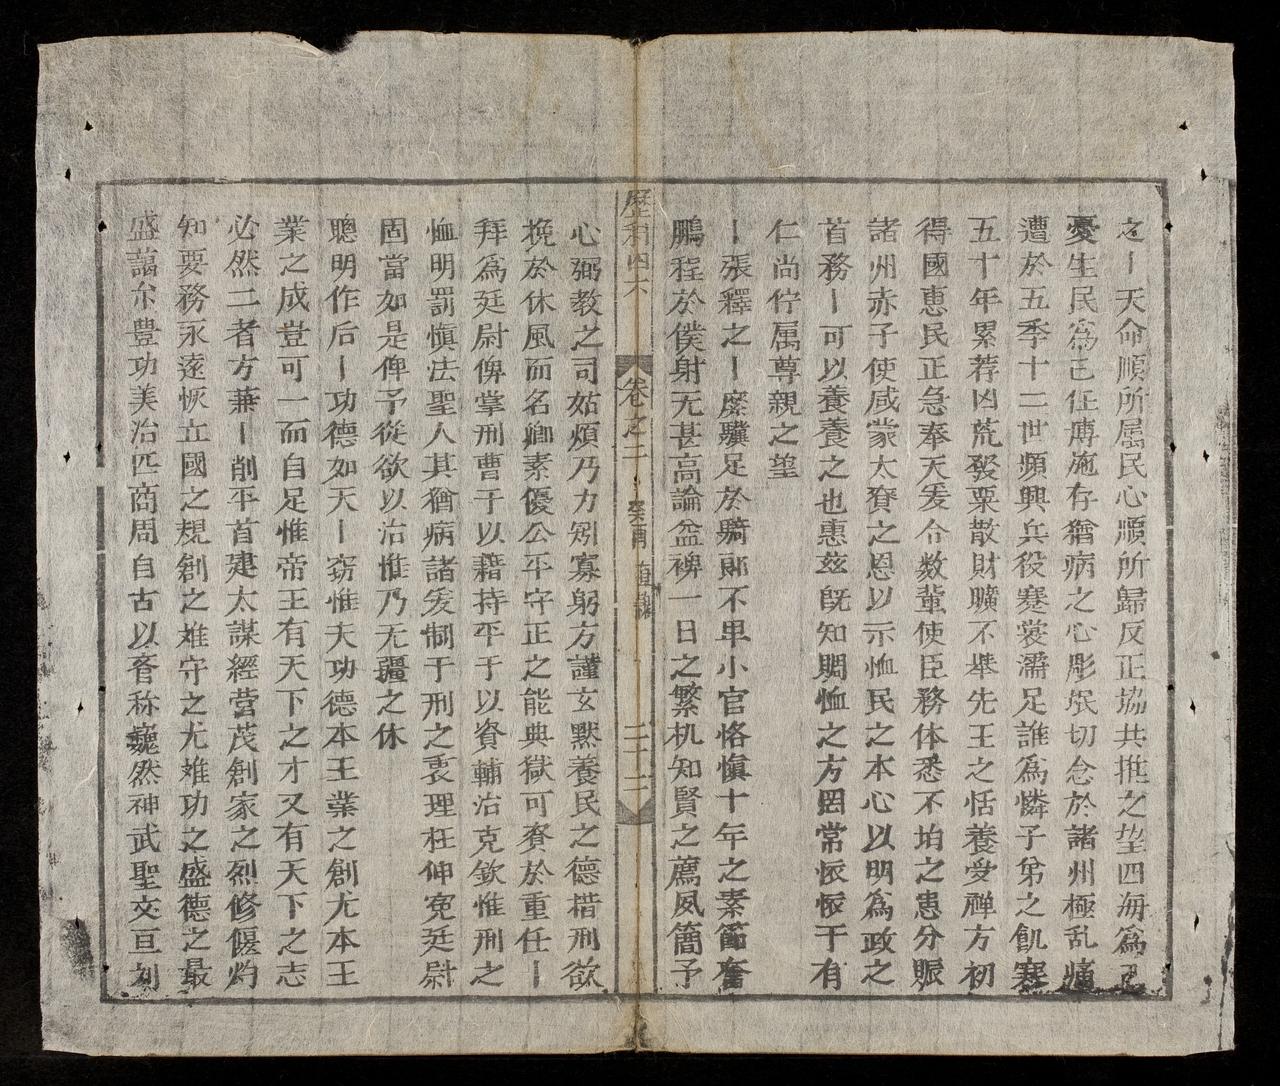 之丨天命順所属民心順所歸反正協共推之望四海為己
憂生民為己任博施存猶病之心彫氓切念於諸州極乱痛
遭於五季十二世頻興兵役蹇裳濡足誰為憐子弟之飢寒
五十年累荐凶荒發粟散財曠不舉先王之恬養受禅方初
得國惠民正急奉天爰令数輩使臣務体悉不均之患分賑
諸州赤子使咸蒙太賚之恩以示恤民之本心以明為政之
首務丨可以養養之也惠玆既知賙恤之方罔常恢恢于有
仁尚佇属尊親之望
丨張釋之丨縻驥足於騎郎不卑小官恪慎十年之素節奮
鵬程於僕射无甚高論益裨一日之繁机知賢之薦夙簡予
歷科四六
卷之二
癸酉
二十二
心弼教之司姑煩乃力矧寡躬方謹玄默養民之德楷刑欲
挽於休風而名卿素優公平守正之能典獄可賚於重任丨
拜為廷尉俾掌刑曹于以藉持平于以資輔治克欽惟刑之
恤明罰慎法聖人其猶病諸爰制于刑之衷理枉伸寃廷尉
固當如是俾予從欲以治惟乃无疆之休
聰明作后丨功德如天丨窃惟大功德本王業之創尤本王
業之成豈可一而自足惟帝王有天下之才又有天下之志
必然二者方兼丨削平首建太謀經营茂創家之烈修偃灼
知要務永遠恢立國之規創之难守之尤难功之盛德之最
盛藹尒豊功美治匹商周自古以來称巍然神武聖文亘刻